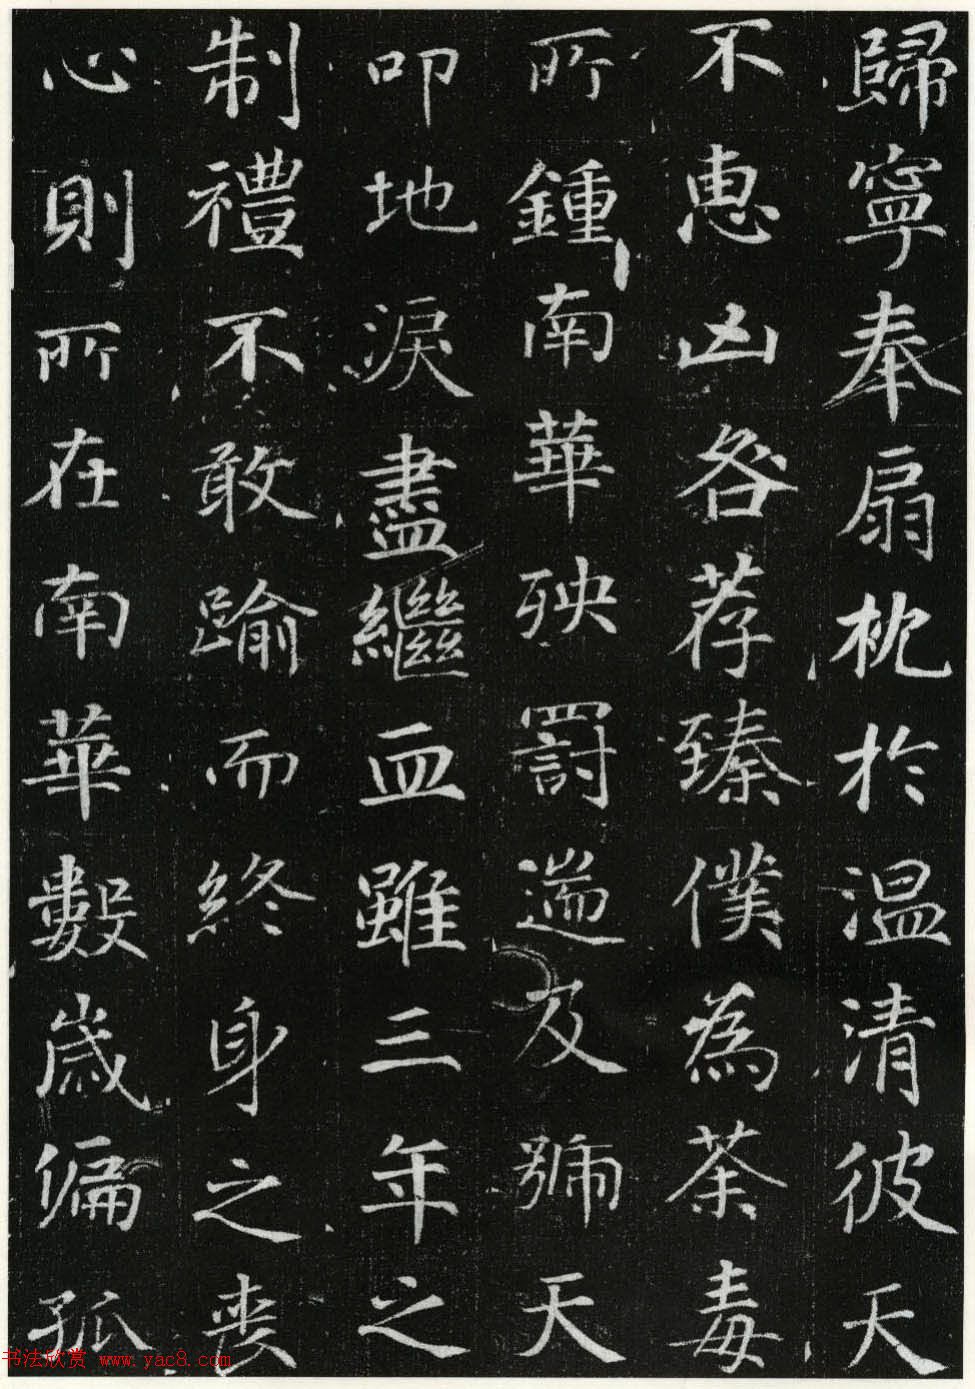 歸寧奉扇枕於温清彼天
不惠凶咎荐臻僕為荼毒
所鍾南華殃罰遄及號天
叩地淚盡繼血雖三年之
制禮不敢踰而終身之喪
心則所在南華數歲偏孤
书法欣赏 www.yac8.com